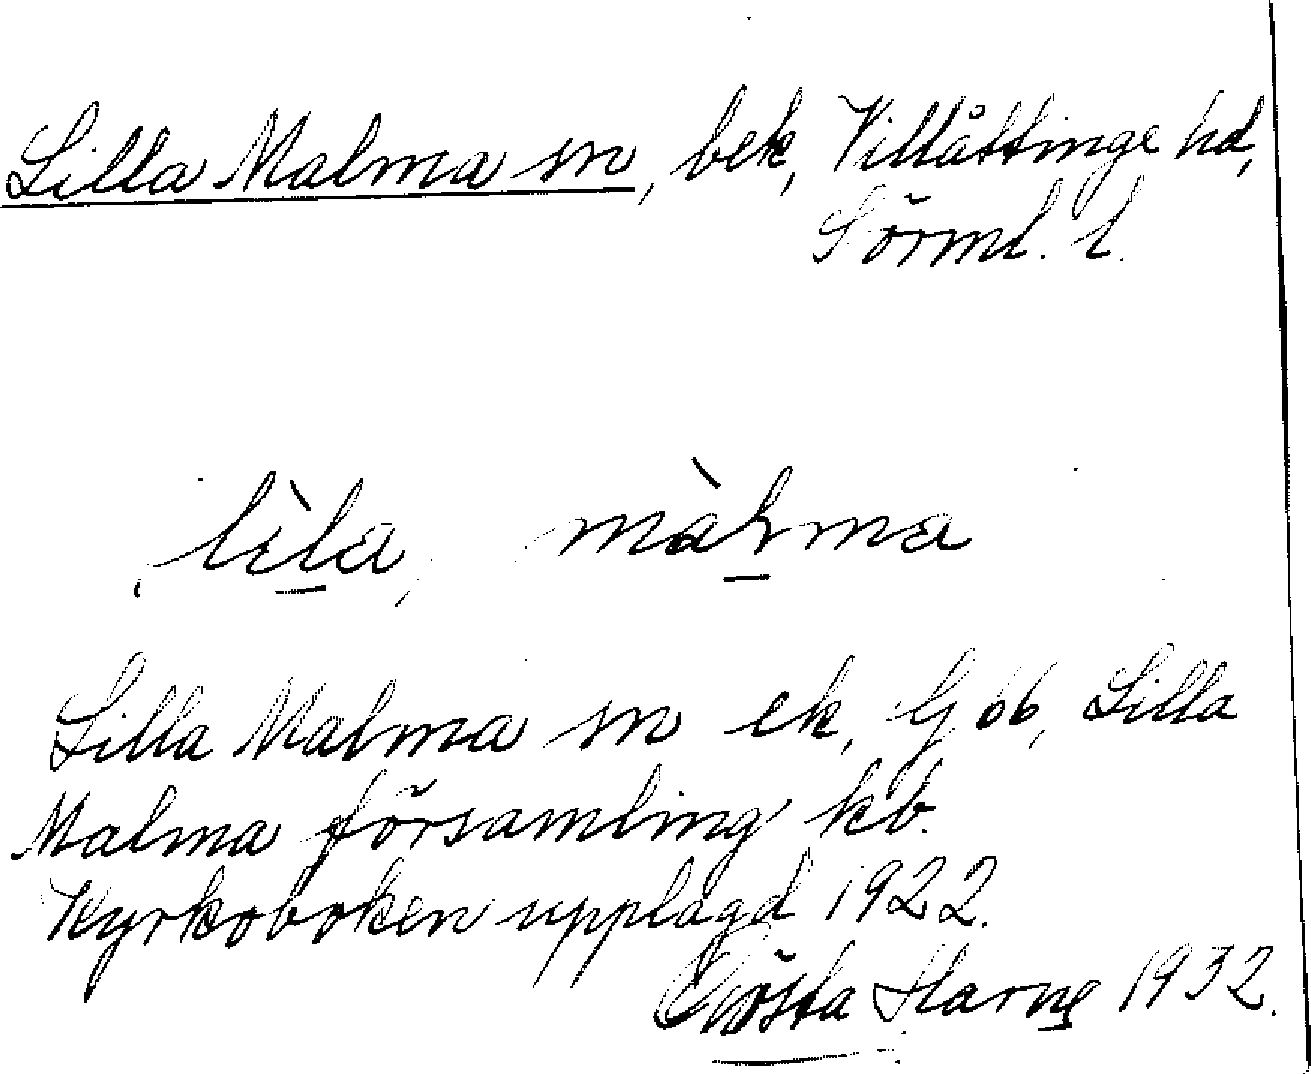 Lilla Malma sn, bek, Villåttinge hd,
Sörml. l.
lìla, màlma
Lilla Malma sn ek, Gbb, Lilla
Malma församling kb.
Kyrkoboken upplagd 1922.
Gösta Harne 1932.